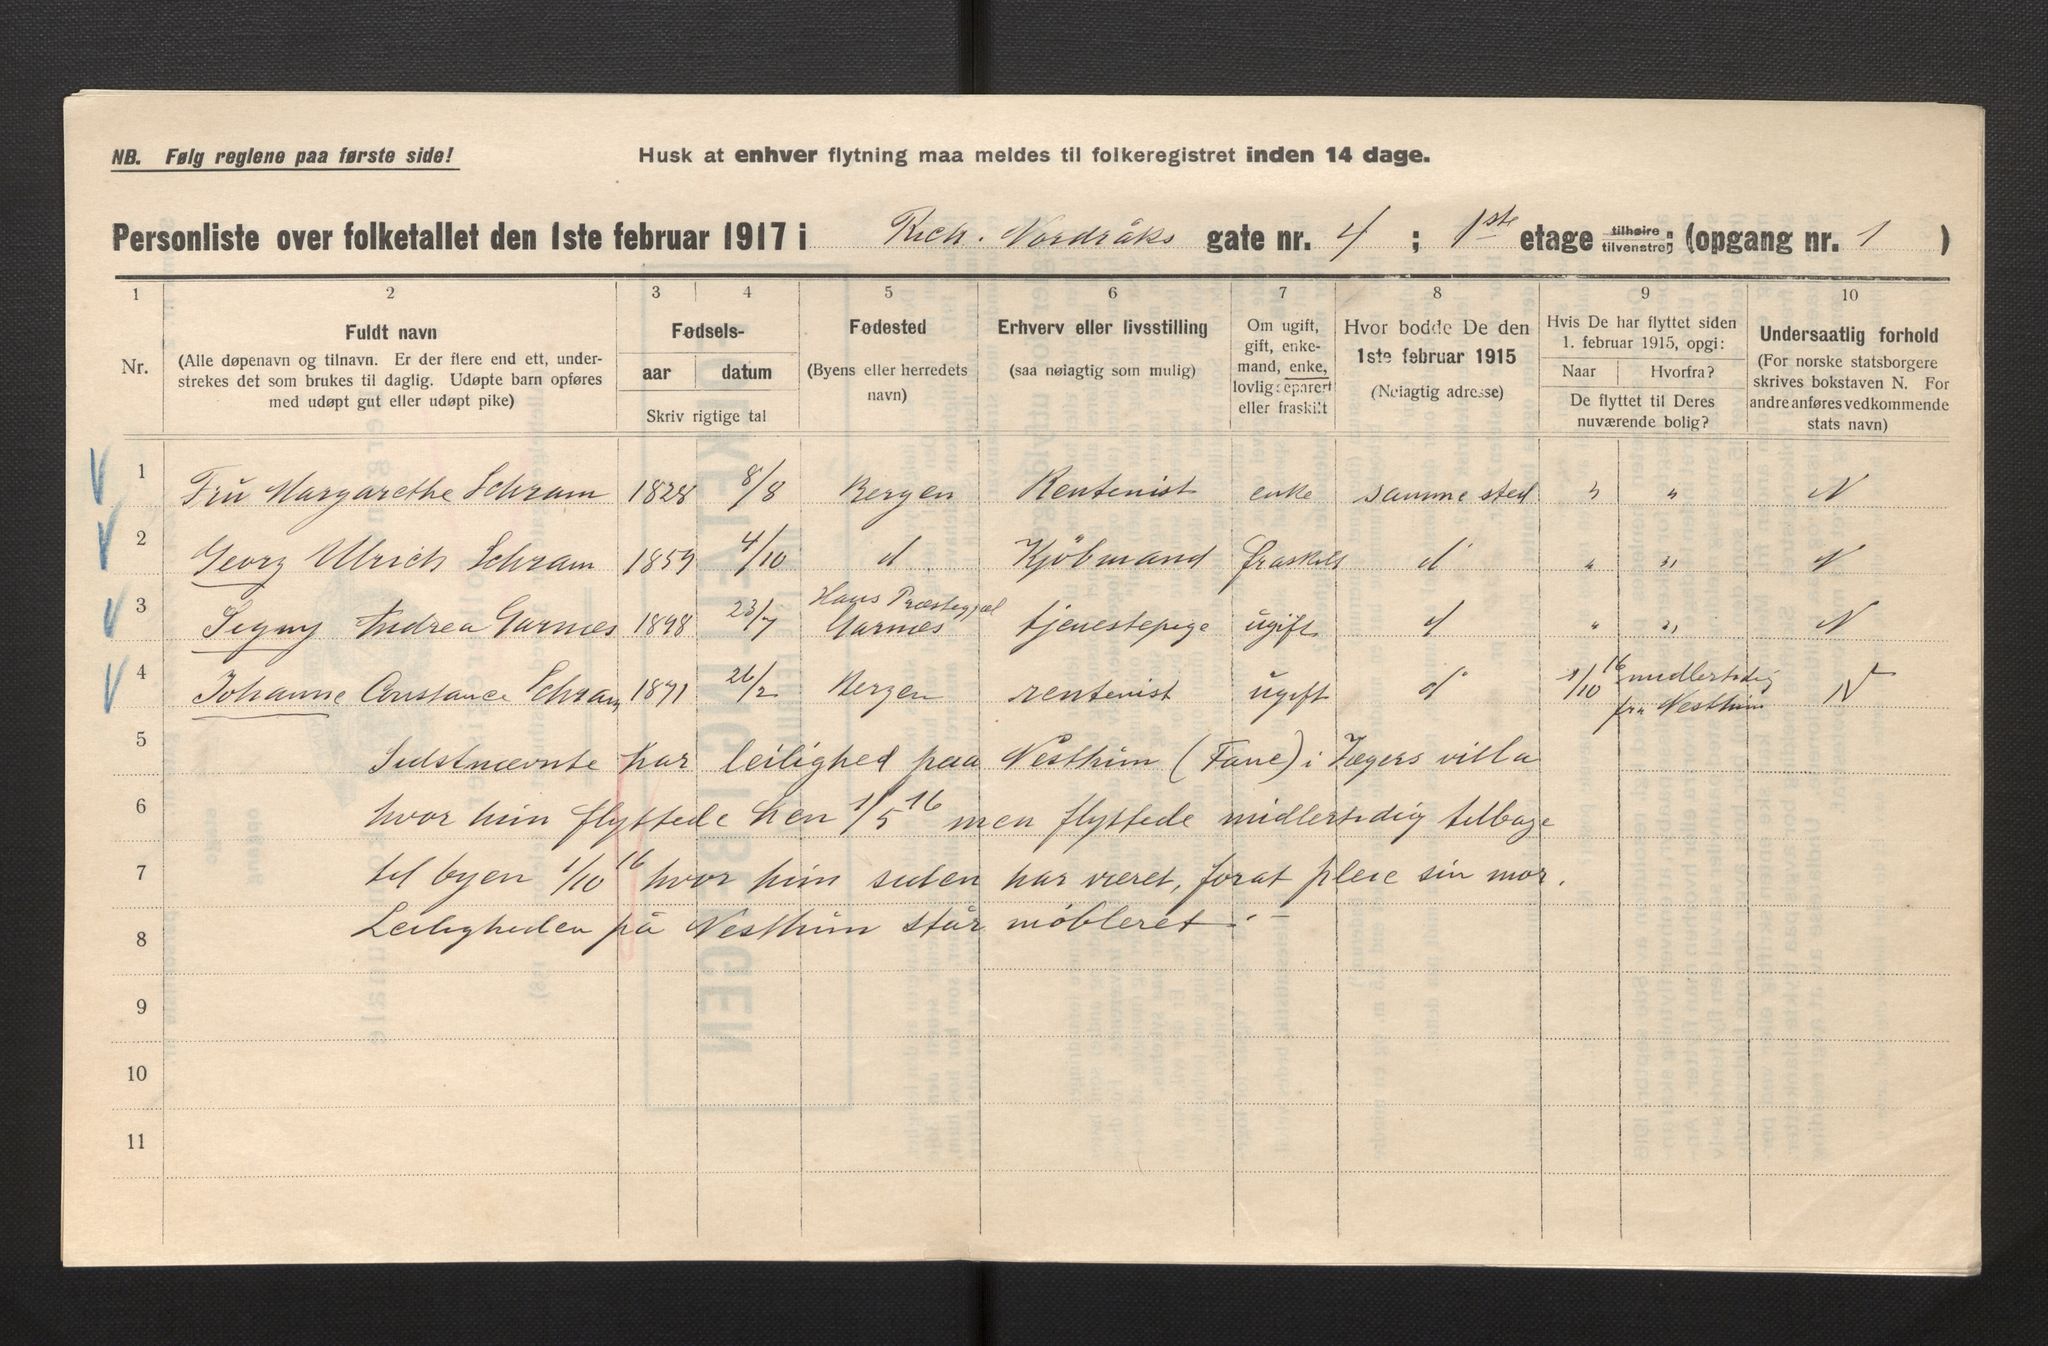 NB. Følg reglene paa første side!
Husk at enhver flytning maa meldes til folkeregistret inden 14 dage.
Personliste over folketallet den 1ste februar 1917 i Rich. Nordråks gate nr. 4 ; 1ste etage tilhøire/tilvenstre; (opgang nr. 1 )
1 2 3 4 5 6 7 8 9 10
Nr.
Fuldt navn
(Alle døpenavn og tilnavn. Er der flere end ett, under-
strekes det som brukes til daglig. Udøpte barn opføres
med udøpt gut eller udøpt pike)
Fødsels-
aar datum
Skriv rigtige tal
Fødested
(Byens eller herredets
navn)
Erhverv eller livsstilling
(saa nøiagtig som mulig)
Om ugift,
gift, enke-
mand, enke,
lovlig separert
eller fraskilt
Hvor bodde De den
1ste februar 1915
(Nøiagtig adresse)
Hvis De har flyttet siden
1. februar 1915, opgi:
Naar Hvorfra?
De flyttet til Deres
nuværende bolig?
Undersaatlig forhold
(For norske statsborgere
skrives bokstaven N. For
andre anføres vedkommende
stats navn)
1 Fru Margarethe Schram 1828 8/8 Bergen Rentenist enke samme sted " " N
2 Georg Ulrich Schram 1859 4/10 d Kjöbmand fraskilt d " " N
3 Signy Andrea Garnes 1898 23/7 Haus Præstegjæl Garnes tjenestepige ugift d " " N
4 Johanne Constance Schram 1871 26/2 Bergen rentenist ugift d 1/10 16 midlertidig fra Nesthun N
5 Sidstnævnte har leilighed paa Nesthun (Fane) i Jægers villa
6 hvor hun flyttede hen 1/5 16 men flyttede midlertidig tilbage
7 til byen 1/10 16 hvor hun siden har været, forat pleie sin mor.
8 Leiligheden på Nesthun står möbleret.
9
10
11